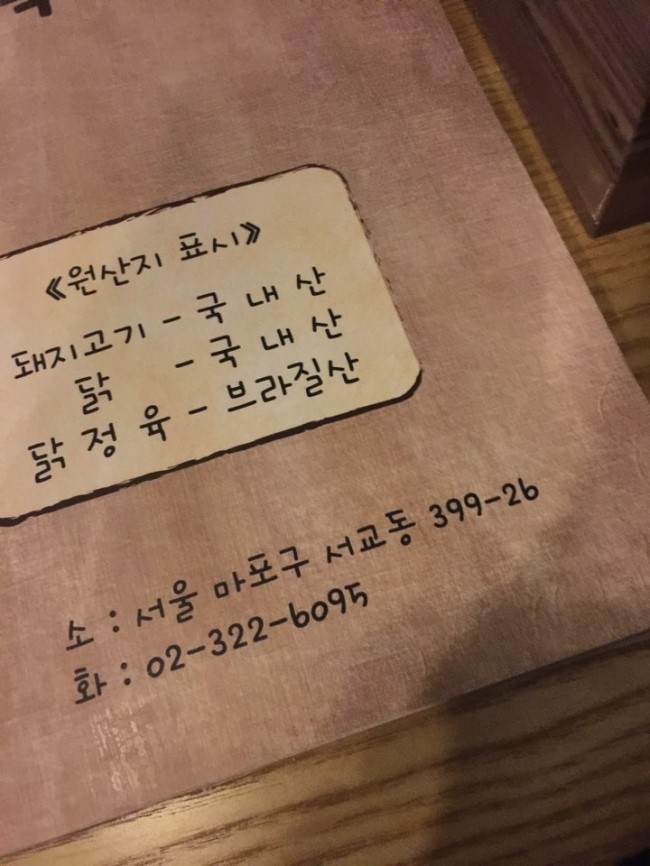 《원산지 표시》
돼지고기 - 국 내 산
닭 - 국 내 산
닭 정 육 - 브라질산
소 : 서울 마포구 서교동 399-26
화 : 02-322-6095